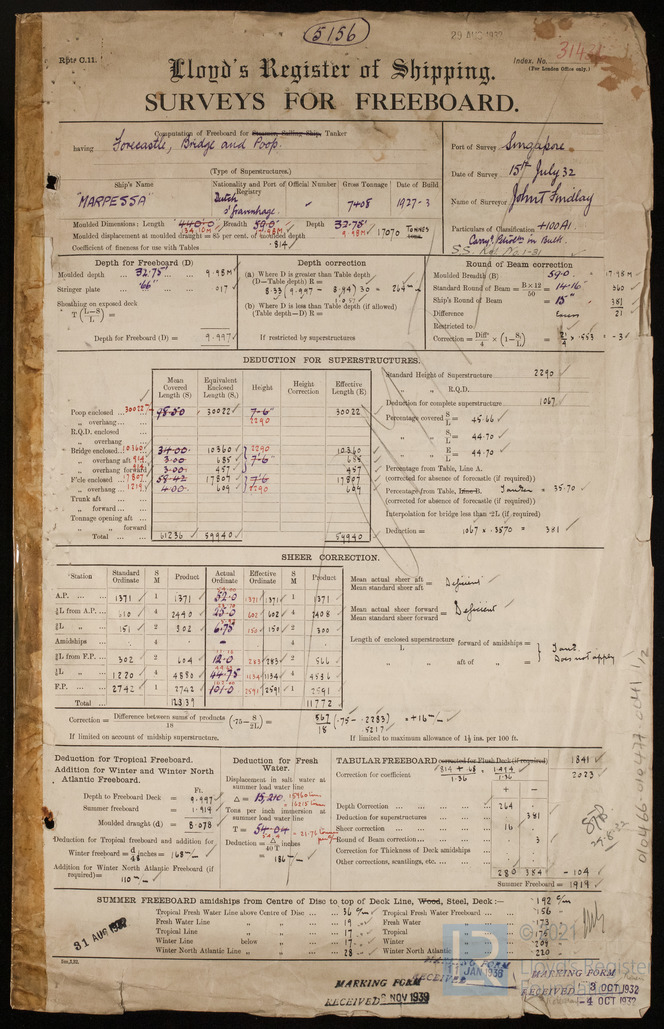 5156
29 AUG 1932
Rpt. C.11.
Index. No.
(For London Office only.)
Lloyd's Register of Shipping.
SURVEYS FOR FREEBOARD.
Computation of Freeboard for Steamer, Sailing Ship, Tanker
having Forecastle, Bridge and Poop.
(Type of Superstructures.)
Port of Survey Singapore
Date of Survey 15th July 32
Name of Surveyor John T Findlay
Particulars of Classification +100A1.
Carry'g Petrol'm in Bulk.
Ship's Name
Nationality and Port of Registry
Official Number
Gross Tonnage
Date of Build
"MARPESSA"
Dutch
s'Gravenhage.
7408
1927-3
Moulded Dimensions: Length 440.0 Breadth 59.0 Depth 32.75'
Moulded displacement at moulded draught = 85 per cent. of moulded depth 17070 TONNES
Coefficient of fineness for use with Tables .814
Depth for Freeboard (D)
Moulded depth 32.75' 9.98M
Stringer plate .66" .017
Sheathing on exposed deck
T(L-S/L) =
Depth for Freeboard (D) = 9.997
Depth correction
(a) Where D is greater than Table depth
(D—Table depth) R =
8.33 (9.997 - 8.94) 30 = 264
(b) Where D is less than Table depth (if allowed)
(Table depth—D) R =
If restricted by superstructures
Round of Beam correction
Moulded Breadth (B) 59.0 17.98M
Standard Round of Beam = B×12/50 = 14.16" 360
Ship's Round of Beam = 15" 381
Difference Excess 21
Restricted to
Correction = Diff/4 × (1-S/L) = 21/4 × .553 = -3
DEDUCTION FOR SUPERSTRUCTURES.
Mean Covered Length (S)
Equivalent Enclosed Length (S₁)
Height
Height Correction
Effective Length (E)
Poop enclosed 30022 98.50 30022 7-6" 30022
„ overhang 2290
R.Q.D. enclosed
„ overhang
Bridge enclosed 10360 34.00 10360 2290 10360
„ overhang aft 914 3.00 685 7-6" 685
„ overhang forward 914 3.00 457 457
F'cle enclosed 17807 58.42 17807 7-6 17807
„ overhang 1219 4.00 609 2290 609
Trunk aft
„ forward
Tonnage opening aft
„ „ forward
Total 61236 59940 59940
Standard Height of Superstructure 2290
„ „ R.Q.D.
Deduction for complete superstructure 1067
Percentage covered S/L = 45.66
„ S₁/L = 44.70
„ E/L = 44.70
Percentage from Table, Line A.
(corrected for absence of forecastle (if required))
Percentage from Table, Line B. Tanker = 35.70
(corrected for absence of forecastle (if required))
Interpolation for bridge less than ·2L (if required)
Deduction = 1067 × .3570 = 381
SHEER CORRECTION.
Station
Standard Ordinate
S M
Product
Actual Ordinate
Effective Ordinate
S M
Product
A.P. 1371 1 1371 52.0 1371 1371 1 1371
⅙L from A.P. 610 4 2440 23.0 602 602 4 2408
⅓L „ 151 2 302 6.75 150 150 2 300
Amidships 4 - 4
⅓L from F.P. 302 2 604 12.0 283 283 2 566
⅙L „ 1220 4 4880 44.75 1134 1134 4 4536
F.P. 2742 1 2742 101.0 2591 2591 1 2591
Total 12339 11772
Mean actual sheer aft
Mean standard sheer aft = Deficient
Mean actual sheer forward
Mean standard sheer forward = Deficient
Length of enclosed superstructure forward of amidships =
L
„ „ aft of „ =
Does not apply
Correction = Difference between sums of products/18 (·75 - S/2L) = 567/18 (.75 - .2283) = +16
.5217
If limited on account of midship superstructure.
If limited to maximum allowance of 1½ ins. per 100 ft.
Deduction for Tropical Freeboard.
Addition for Winter and Winter North Atlantic Freeboard.
Ft.
Depth to Freeboard Deck = 9.997
Summer freeboard = 1.919
Moulded draught (d) = 8.078
Deduction for Tropical freeboard and addition for
Winter freeboard = d/48 inches = 168
Addition for Winter North Atlantic Freeboard (if required) = 110
Deduction for Fresh Water.
Displacement in salt water at summer load water line
Δ = 15,210
Tons per inch immersion at summer load water line
T = 54.04
Deduction = Δ/40T inches
= 186
TABULAR FREEBOARD corrected for Flush Deck (if required) 1841
Correction for coefficient .814 + .68/1.36 = 1.494/1.36 2023
+ -
Depth Correction 264
Deduction for superstructures 381
Sheer correction 16
Round of Beam correction 3
Correction for Thickness of Deck amidships
Other corrections, scantlings, etc.
280 384 -104
Summer Freeboard = 1919
SUMMER FREEBOARD amidships from Centre of Disc to top of Deck Line, Wood, Steel, Deck:— 192
Tropical Fresh Water Line above Centre of Disc 36 Tropical Fresh Water Freeboard 156
Fresh Water Line „ „ 19 Fresh Water „ 173
Tropical Line „ „ 17 Tropical „ 175
Winter Line below „ 17 Winter „ 209
Winter North Atlantic Line „ „ 28 Winter North Atlantic „ 220
31 AUG 1932
MARKING FORM
RECEIVED 11 JAN 1938
MARKING FORM
RECEIVED 2 NOV 1939
MARKING FORM
RECEIVED 3 OCT 1932
-4 OCT 1932
© 2021
Lloyd's Register
Foundation